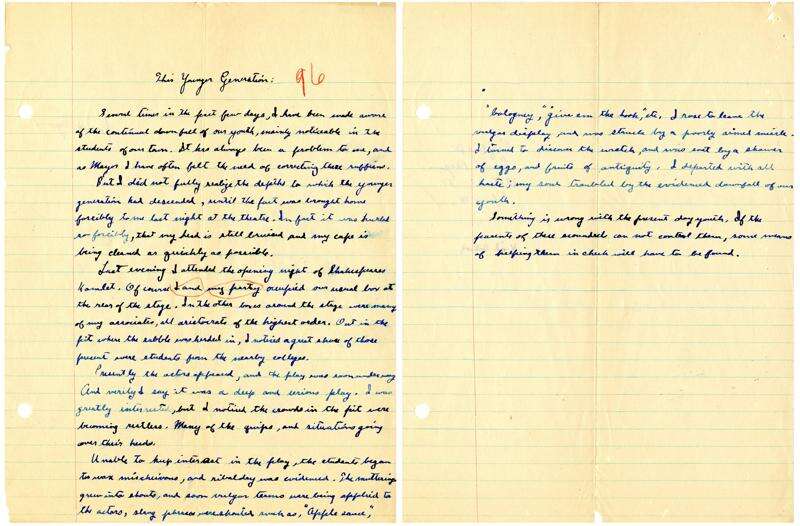 This Younger Generation:
96
Several times in the past few days, I have been made aware
of the continued downfall of our youth, mainly noticeable in the
students of our town. It has always been a problem to me, and
as Mayor I have often felt the need of correcting these ruffians.
But I did not fully realize the depths to which the younger
generation had descended, until the fact was brought home
forcibly to me last night at the theatre. In fact it was hurled
so forcibly, that my head is still bruised and my cape is
being cleaned as quickly as possible.
Last evening I attended the opening night of Shakespeares
Hamlet. Of course I and my party occupied our usual box at
the rear of the stage. In the other boxes around the stage were many
of my associates, all aristocrats of the highest order. Out in the
pit where the rabble was herded in, I noticed a great share of those
present were students from the nearby colleges.
Presently the actors appeared, and the play was soon underway
And verily I say it was a deep and serious play. I was
greatly interested, but I noticed the crowds in the pit were
becoming restless. Many of the quips, and situations going
over their heads.
Unable to keep interest in the play, the students began
to wax mischeivous, and ribaldry was evidenced. The mutterings
grew into shouts, and soon vulgar terms were being applied to
the actors, slang phrases were shouted such as, "Apple sauce",
"bologney", "give em the hook", etc. I rose to leave the
vulgar display, and was struck by a poorly aimed missile.
I turned to discover the wretch, and was met by a shower
of eggs, and fruits of antiquity. I departed with all
haste; my soul troubled by the evidenced downfall of our
youth.
Something is wrong with the present day youth. If the
parents of these scoundrels can not control them, some means
of keeping them in check will have to be found.